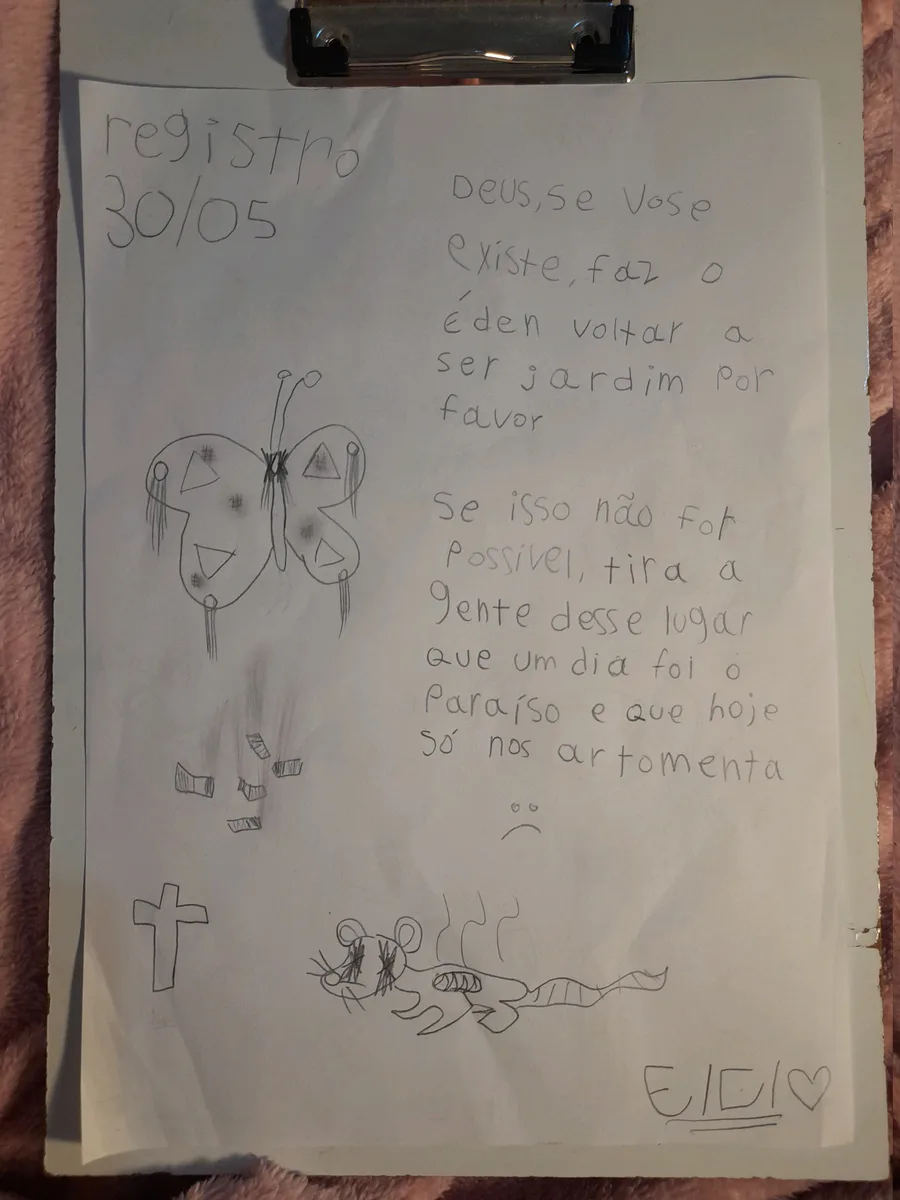 registro
30/05
Deus, se vose
existe, faz o
Éden voltar a
ser jardim por
favor
Se isso não for
possivel, tira a
gente desse lugar
que um dia foi o
paraíso e que hoje
só nos artomenta